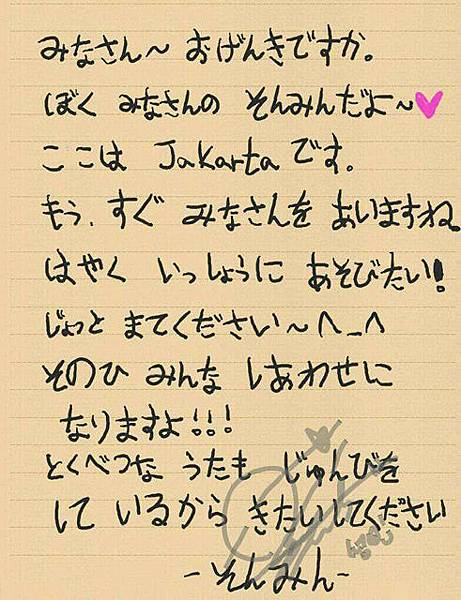 みなさん〜 おげんきですか。
ぼく みなさんの そんみんだよ〜♥
ここは Jakarta です。
もう、すぐ みなさんを あいますね。
はやく いっしょうに あそびたい!
じょっと まてください〜 ^_^
そのひ みんな しあわせに
なりますよ!!!
とくべつな うたも じゅんびを
して いるから きたいしてください
-そんみん-